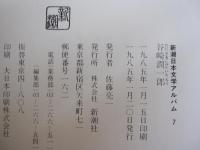 新潮日本文学アルバム 7
谷崎潤一郎
一九八五年一月一五日印刷
一九八五年一月二〇日発行
発行者 佐藤亮一
発行所 株式会社 新潮社
東京都新宿区矢来町七一
郵便番号一六二
電話 業務部(〇三)二六六-五一
編集部(〇三)二六六-五四
振替東京四-八〇八
印刷 大日本印刷株式会社